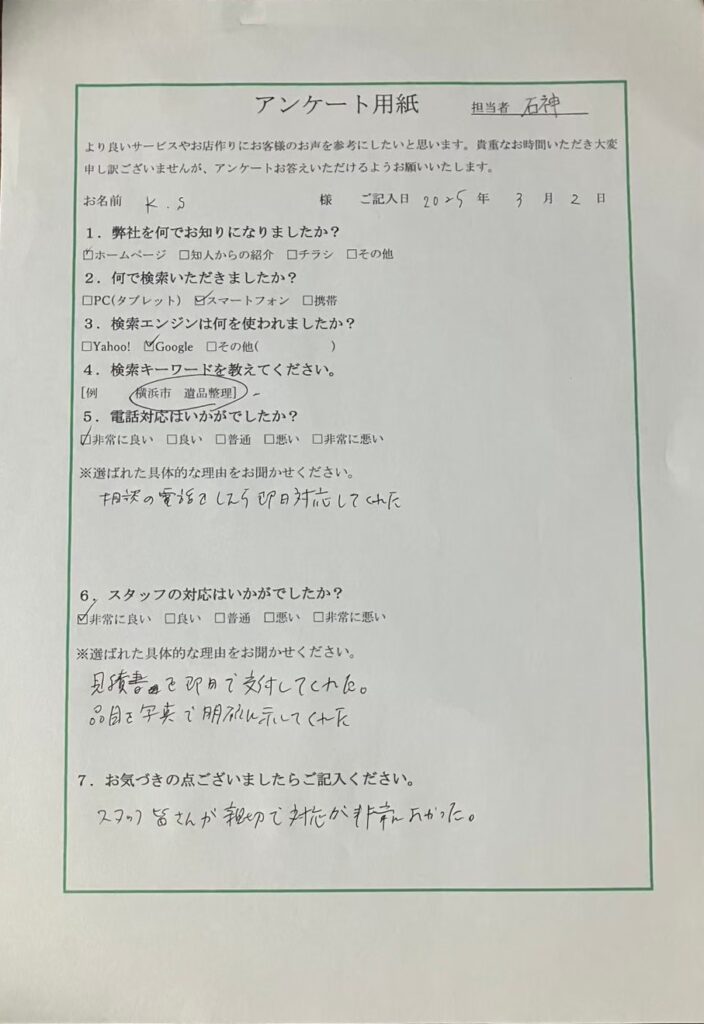 アンケート用紙 担当者 石神
より良いサービスやお店作りにお客様のお声を参考にしたいと思います。貴重なお時間いただき大変
申し訳ございませんが、アンケートお答えいただけるようお願いいたします。
お名前 K.S 様 ご記入日 2025 年 3 月 2 日
1．弊社を何でお知りになりましたか？
☑ホームページ □知人からの紹介 □チラシ □その他
2．何で検索いただきましたか？
□PC(タブレット) ☑スマートフォン □携帯
3．検索エンジンは何を使われましたか？
□Yahoo! ☑Google □その他( )
4．検索キーワードを教えてください。
[例 横浜市 遺品整理]
5．電話対応はいかがでしたか？
☑非常に良い □良い □普通 □悪い □非常に悪い
※選ばれた具体的な理由をお聞かせください。
相談の電話をしたら即日対応してくれた
6．スタッフの対応はいかがでしたか？
☑非常に良い □良い □普通 □悪い □非常に悪い
※選ばれた具体的な理由をお聞かせください。
見積書を即日で交付してくれた。
品目を写真で明確に示してくれた
7．お気づきの点ございましたらご記入ください。
スタッフ皆さんが親切で対応が非常に良かった。